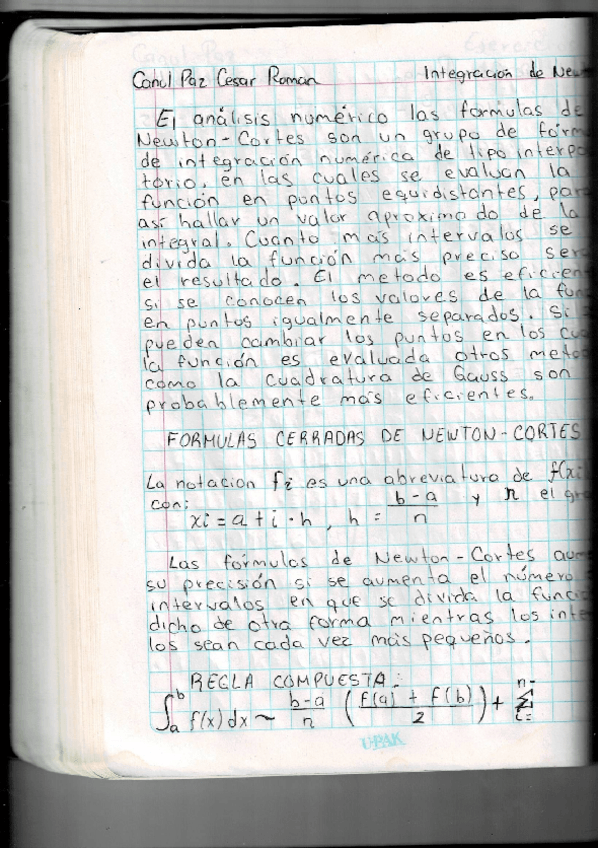 Canul Paz Cesar Roman Integracion de New
El análisis numérico las formulas de
Newton-Cortes son un grupo de fórm
de integración numérica de tipo interpo
torio, en las cuales se evaluan la
función en puntos equidistantes, par
así hallar un valor aproximado de la
integral. Cuanto más intervalos se
divida la función más preciso ser
el resultado. El metodo es eficien
si se conocen los valores de la fun
en puntos igualmente separados. Si
pueden cambiar los puntos en los cua
la función es evaluada otros meto
como la cuadratura de Gauss son
probablemente más eficientes.
FORMULAS CERRADAS DE NEWTON-CORTES
La notacion fi es una abreviatura de f(xi
con:
xi = a + i · h , h = b-a / n y n el gra
Las fórmulas de Newton-Cortes aum
su precisión si se aumenta el número
intervalos en que se divida la funci
dicho de otra forma mientras los inte
los sean cada vez más pequeños.
REGLA COMPUESTA:
∫ₐᵇ f(x) dx ~ b-a / n (f(a) + f(b) / 2) + n- Σ i=
UPAK